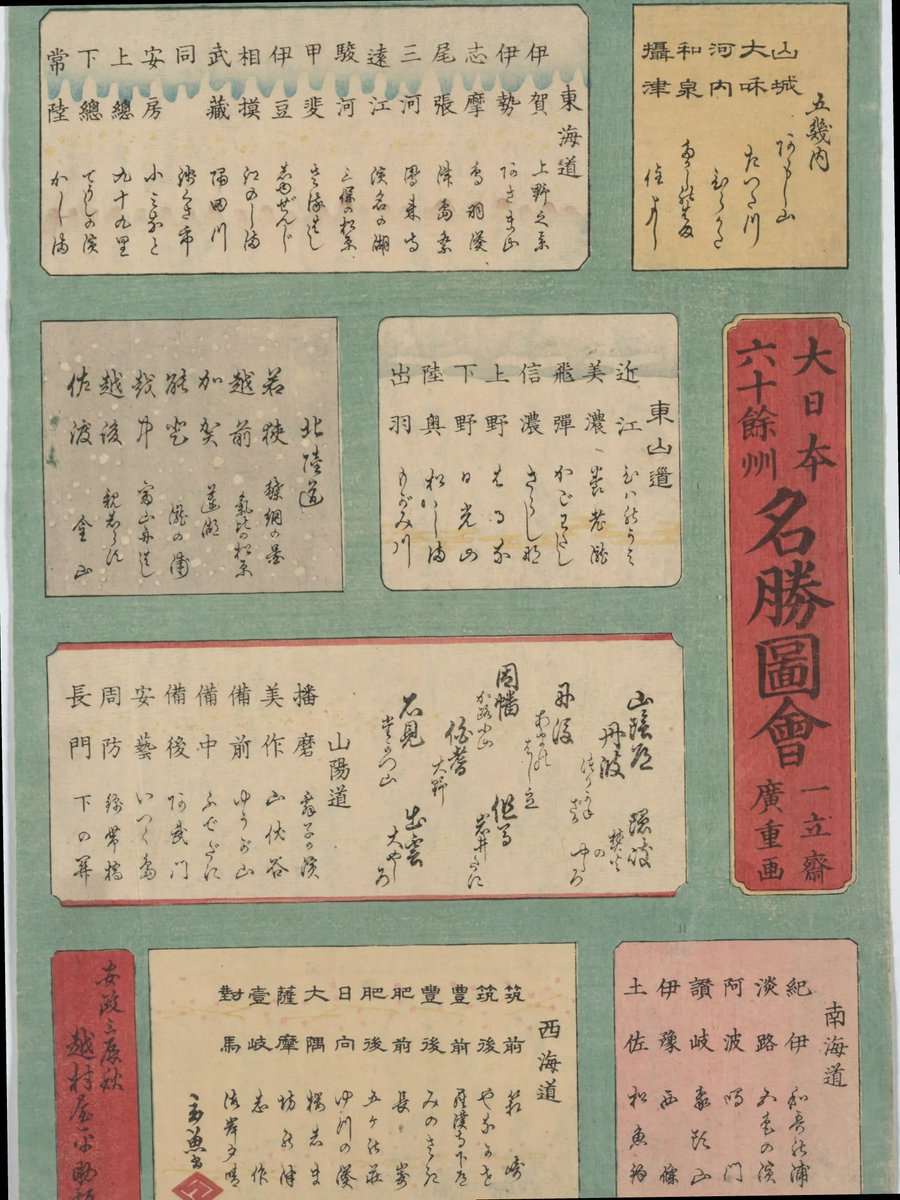 大日本
六十餘州
名勝圖會
一立齋
廣重画
五幾内
山城 あらし山
大和 たつた川
河内 ひらかた
和泉
攝津 住よし
東海道
伊賀 上野之景
伊勢 あさま山
志摩 鳥羽湊
尾張 津島祭
三河 鳳来寺
遠江 濱名の湖
駿河 三保の松原
甲斐 さるはし
伊豆 志ゆぜんじ
相摸 江のしま
武藏 隅田川
同 浅くさ市
安房 小みなと
上總 九十九里
下總 てうしの濱
常陸 かしま
東山道
近江 びはのうみ
美濃 養老瀧
飛彈 かごわたし
信濃 さらしな
上野 はるな
下野 日光山
陸奥 松しま
出羽 もがみ川
北陸道
若狭 漁網の景
越前 氣比の松原
加賀 蓮湖
能登 瀧の浦
越中 冨山舟はし
越後 親志らず
佐渡 金山
山陰道
丹波
丹後 あまのはし立
但馬 岩井たに
因幡 か路小山
伯耆 大野
出雲 大やしろ
石見 たかつ山
隠岐 焚火のやしろ
山陽道
播磨 舞子の濱
美作 山伏谷
備前 ゆうが山
備中
備後 あぶ門
安藝 いつく島
周防 錦帯橋
長門 下の関
南海道
紀伊 和哥の浦
淡路 五色の濱
阿波 鳴門
讃岐 象頭山
伊豫 西條
土佐 松魚釣
西海道
筑前 筥崎
筑後 やなせ
豊前 羅漢寺下道
豐後 みのさき
肥前 長崎
肥後 五ケの荘
日向 ゆ川の湊
大隅 櫻志ま
薩摩 坊の津
壹岐 志作
對馬 海岸夕晴
安政三辰秋
越村屋平助